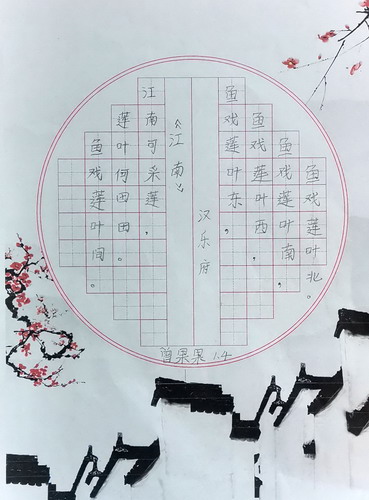 《江南》
汉乐府
江南可采莲，
莲叶何田田。
鱼戏莲叶间。
鱼戏莲叶东，
鱼戏莲叶西，
鱼戏莲叶南，
鱼戏莲叶北。
果果 1.4